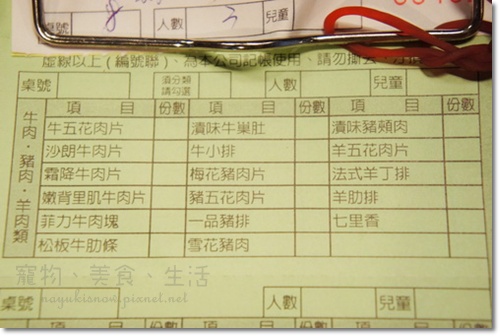 8 人數 3 兒童
虛線以上(編號聯)、為本公司記帳使用、請勿撕去
桌號 須分類請勾選 人數 兒童
牛肉·豬肉·羊肉類
項目 份數 項目 份數 項目 份數
牛五花肉片 漬味牛巢肚 漬味豬頰肉
沙朗牛肉片 牛小排 羊五花肉片
霜降牛肉片 梅花豬肉片 法式羊丁排
嫩背里肌牛肉片 豬五花肉片 羊肋排
菲力牛肉塊 一品豬排 七里香
松板牛肋條 雪花豬肉
寵物、美食、生活
nayukisnow.pixnet.net
桌號 人數 兒童